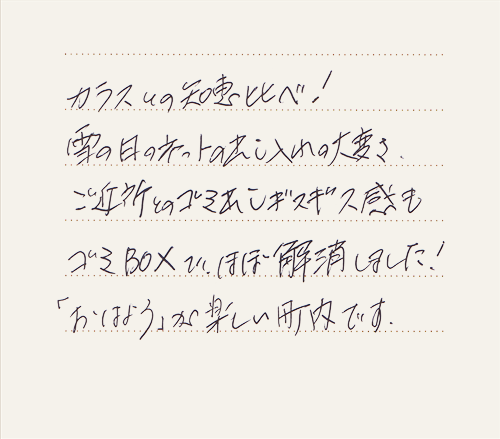 カラスとの知恵比べ!
雪の日のネットの出し入れの大変さ.
ご近所とのゴミ出しギスギス感も
ゴミBOXで、ほぼ解消しました!
「おはよう」が楽しい町内です.